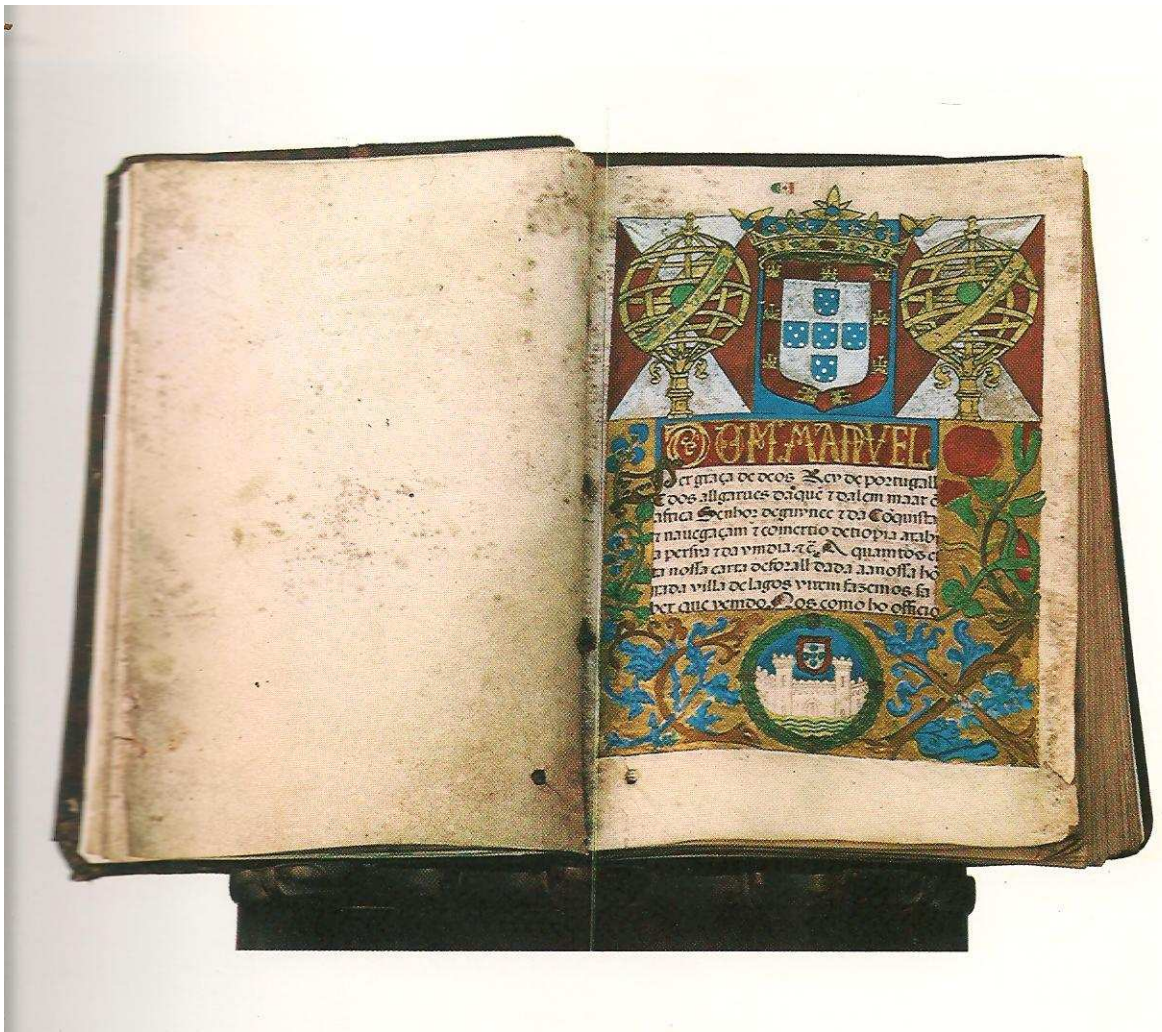 DOM MANVEL
Per graça de deos Rey de portugall
e dos allgarues daque ⁊ dalem maar ẽ
africa Senhor deguynee ⁊ da Cõquista
⁊ nauegaçam ⁊ comertio detiopia arab
a persya ⁊ da yndia ⁊c̃ A quamtos es
ta nossa carta deforall dada aanossa hõ
rrada villa de lagos virem fazemos sa
ber que vemdo Nos como ho officio